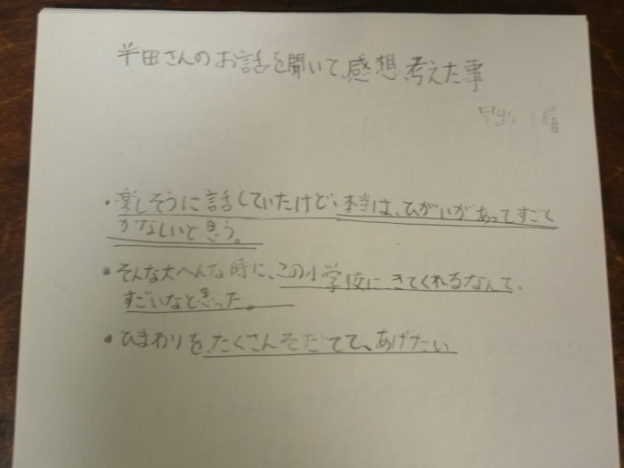 半田さんのお話を聞いて、感想、考えた事
・楽しそうに話していたけど、本当は、ひがいがあってすごく
かなしいと思う。
・そんな大へんな時に、この小学校にきてくれるなんて、
すごいなと思った。
・ひまわりを、たくさんそだてて、あげたい